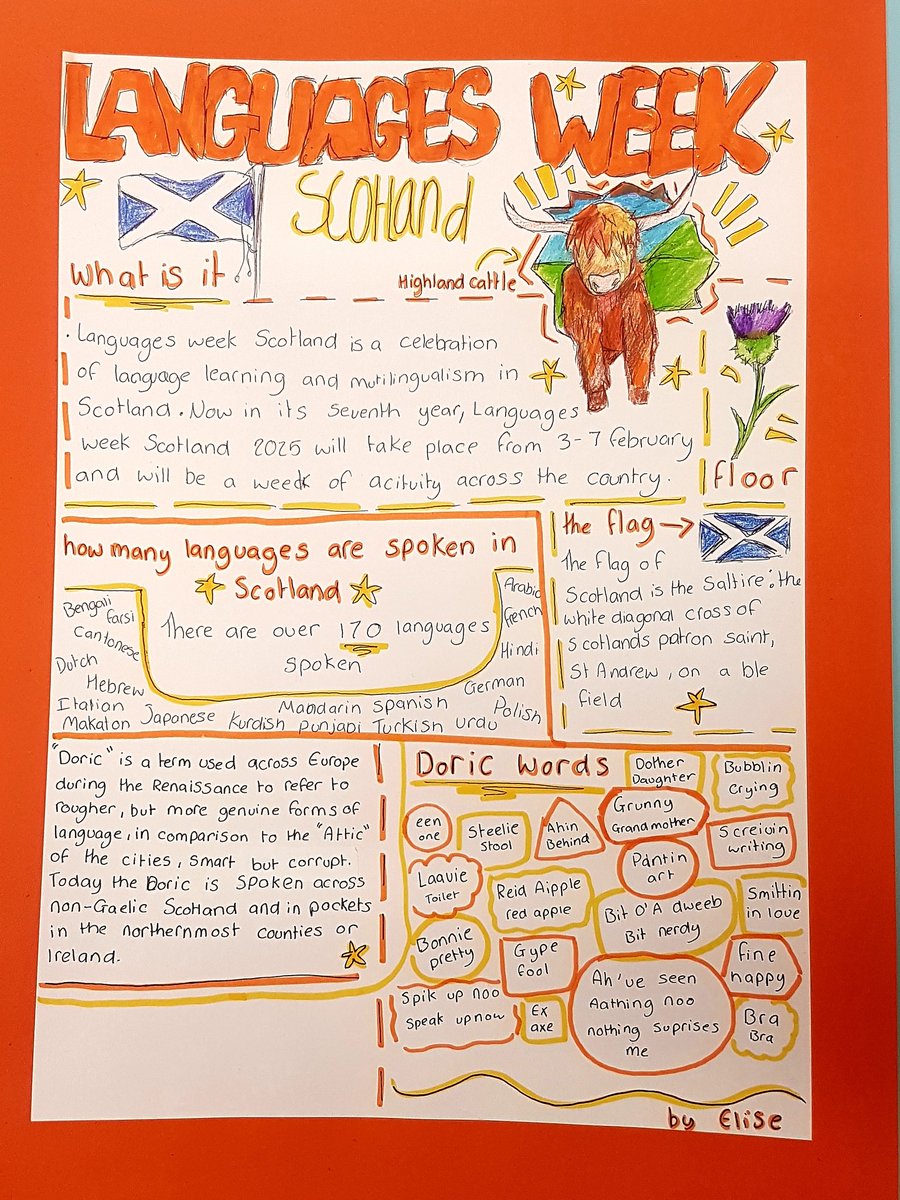 LANGUAGES WEEK
SCOtland
Highland cattle
What is it
. Languages week Scotland is a celebration
of language learning and mutilingualism in
Scotland. Now in its seventh year, Languages
week Scotland 2025 will take place from 3-7 february
and will be a week of acituity across the country.
floor
how many languages are spoken in
Scotland
There are over 170 languages
spoken
Bengali
farsi
Cantonese
Dutch
Hebrew
Italian
Makaton
Japanese
Kurdish
Mandarin
punjabi
Spanish
Turkish
urdu
Arabic
french
Hindi
German
Polish
the flag →
the flag of
Scotland is the Saltire: the
white diagonal cross of
Scotlands patron saint,
St Andrew, on a ble
field
"Doric" is a term used across Europe
during the Renaissance to refer to
rougher, but more genuine forms of
language, in comparison to the "Attic"
of the cities, smart but corrupt.
Today the Doric is spoken across
non-Gaelic Scotland and in pockets
in the northernmost counties or
Ireland.
Doric words
Dother
Daughter
Bubblin
Crying
een
one
Steelie
Stool
Ahin
Behind
Grunny
Grandmother
Screivin
writing
Laavie
Toilet
Reid Aipple
red apple
Pantin
art
Bit O'A dweeb
Bit nerdy
Smittin
in love
Bonnie
pretty
Gype
fool
fine
happy
Spik up noo
Speak up now
Ex
axe
Ah've seen
Aathing noo
nothing suprises
me
Bra
Bra
by Elise